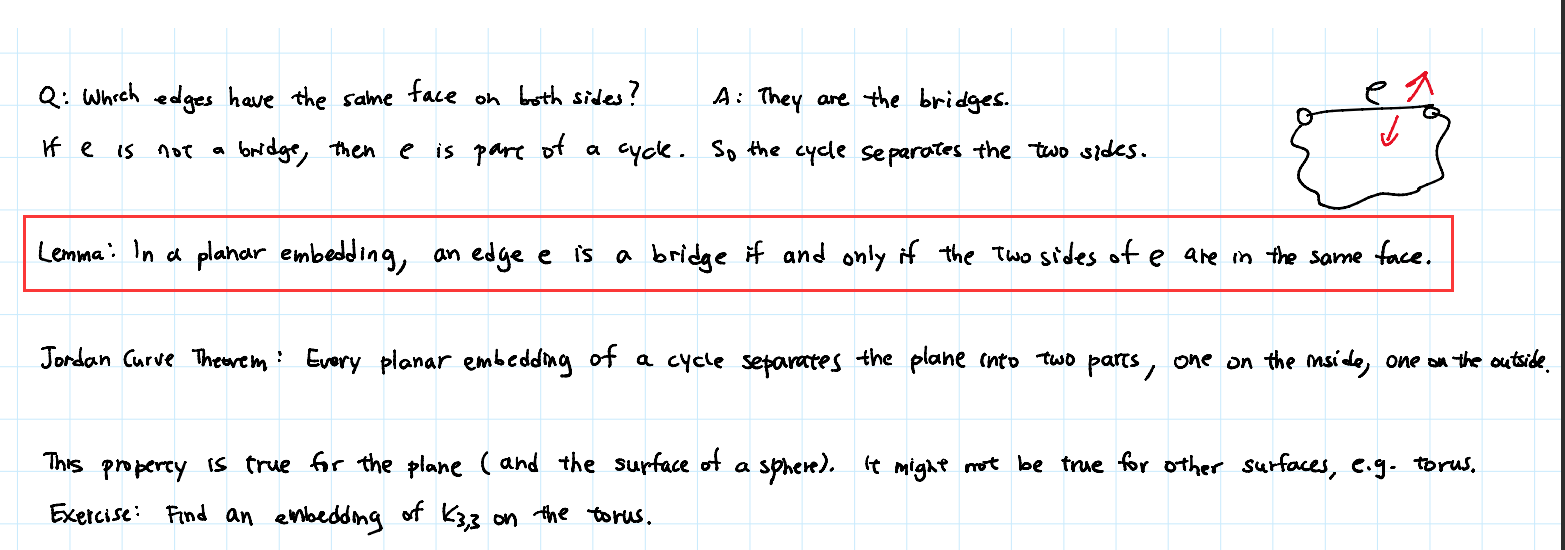 Q: Which edges have the same face on both sides? A: They are the bridges.
e
If e is not a bridge, then e is part of a cycle. So the cycle separates the two sides.
Lemma: In a planar embedding, an edge e is a bridge if and only if the two sides of e are in the same face.
Jordan Curve Theorem: Every planar embedding of a cycle separates the plane into two parts, one on the inside, one on the outside.
This property is true for the plane (and the surface of a sphere). It might not be true for other surfaces, e.g. torus.
Exercise: Find an embedding of K3,3 on the torus.